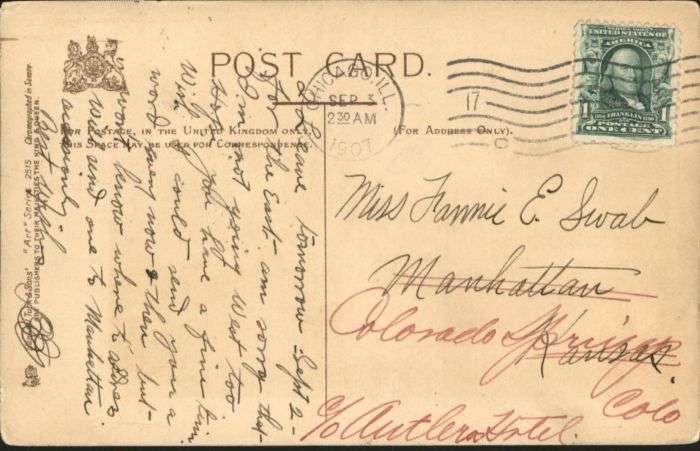 POST CARD.
FOR POSTAGE, IN THE UNITED KINGDOM ONLY,
THIS SPACE MAY BE USED FOR CORRESPONDENCE
(FOR ADDRESS ONLY.)
CHICAGO, ILL.
SEP 3
2 30 AM
1907
17
UNITED STATES OF
AMERICA
FRANKLIN
1
1
POSTAGE
ONE CENT
I leave tomorrow Sept 2-
for the East. am sorry that
I'm not going West too
Hope you have a fine time.
Wish I could send you a
word every now & then but
won't know where to address
Will send one to Manhattan
occasionly.
Best Wishes
Miss Fannie E. Swab
Manhattan
Kansas.
Colorado Springs
Colo
c/o Antlers Hotel.
"Art" Series 2515
PUBLISHERS TO THEIR MAJESTIES THE KING & QUEEN.